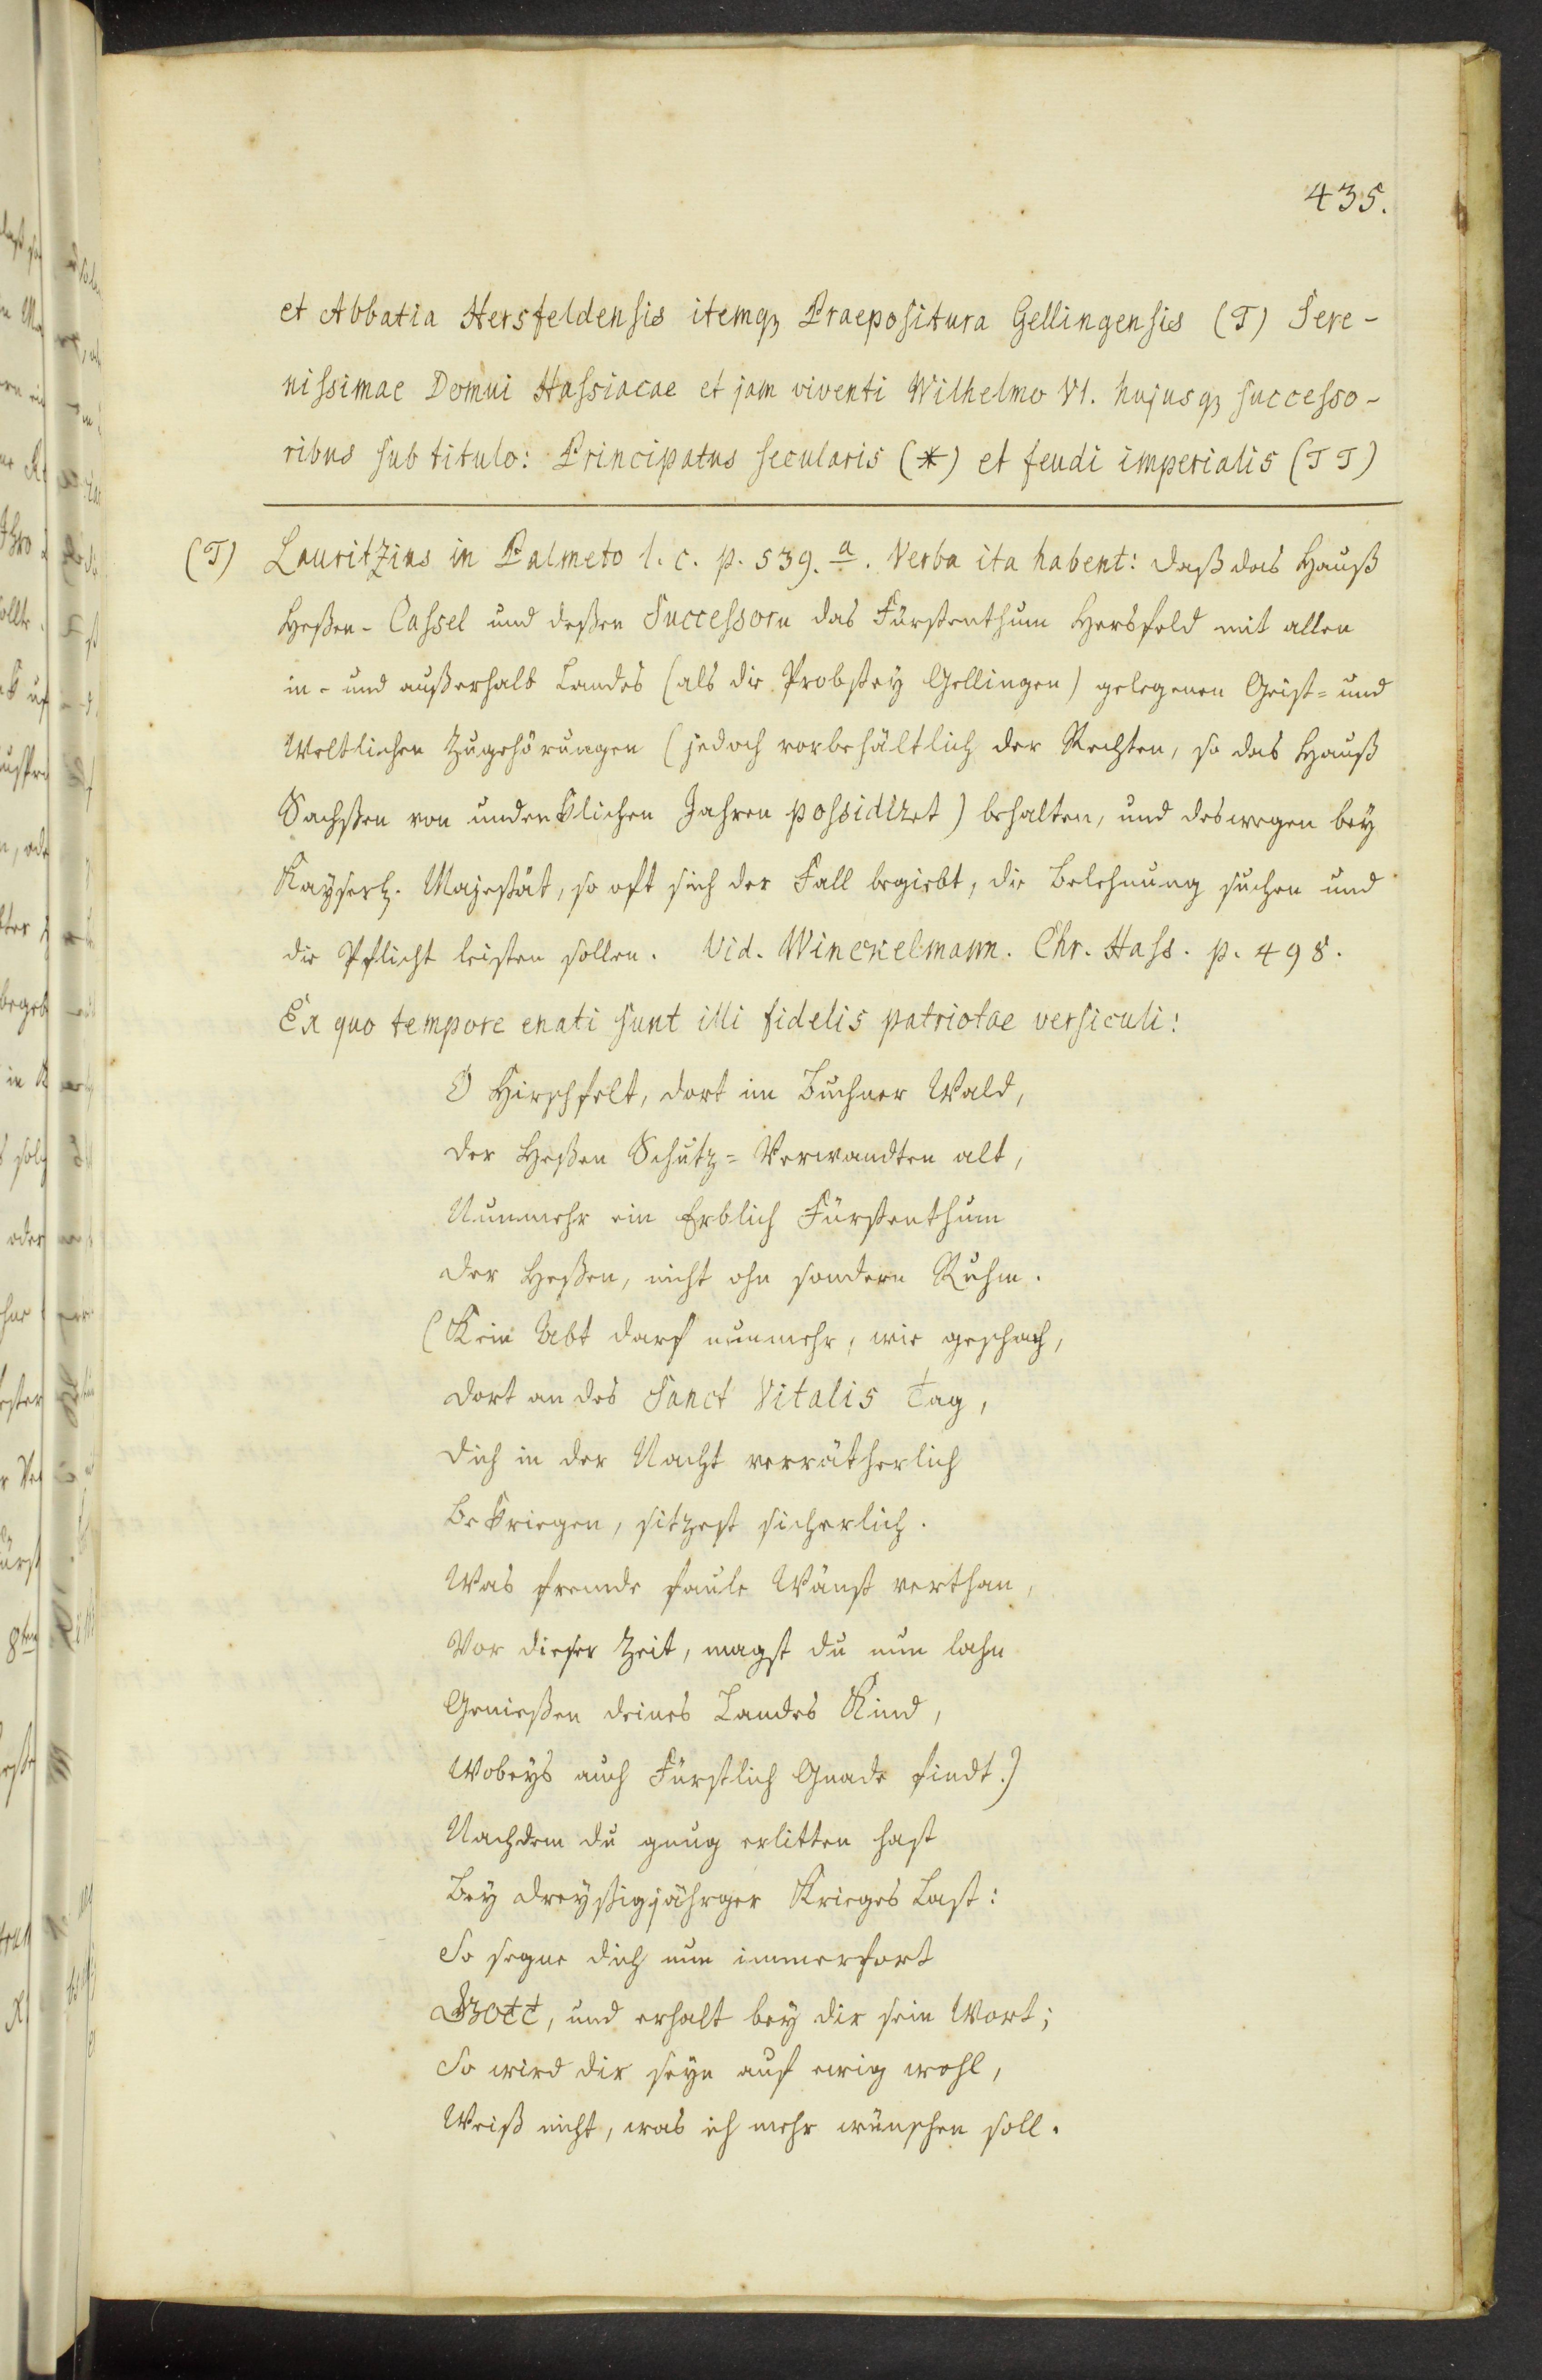 435.
et Abbatia Hersfeldensis itemqꝫ Praepositura Gellingensis (T) Sere-
nissimae Domui Hassiacae et jam viventi Wilhelmo VI. hujusqꝫ successo-
ribus sub titulo: Principatus secularis (*) et feudi imperialis (T T)
(T) Lauritzius in Palmeto l. c. p. 539. a. Verba ita habent: daß das Hauß
Heßen-Cassel und deßen Successorn das Fürstenthum Hersfeld mit allen
in- und außerhalb Landes (als die Probstey Gellingen) gelegenen Geist= und
Weltlichen Zugehörungen (jedoch vorbehältlich der Rechten, so das Hauß
Sachßen von undenklichen Jahren possidiret) behalten, und deswegen bey
Kayserl. Majestät, so oft sich der Fall begiebt, die Belehnung suchen und
die Pflicht leisten sollen. Vid. Winckelmann. Chr. Hass. p. 498.
Ex quo tempore enati sunt illi fidelis patriotae versiculi:
O Hirschfelt, dort im Buchner Wald,
der Heßen Schutz=Verwandten alt,
Nunmehr ein Erblich Fürstenthum
der Heßen, nicht ohn sondern Ruhm.
(Kein Abt darf nunmehr, wie geschach,
dort an des Sanct Vitalis Tag,
dich in der Nacht verrätherlich
bekriegen, sitzest sicherlich.
Was fremde faule Wänst verthan,
Vor dieser Zeit, magst du nun lahn
Genießen deines Landes Kind,
Wobeys auch Fürstlich Gnade findt.)
Nachdem du gnug erlitten hast
Bey dreyßigjährger Krieges Last:
So segne dich nun immerfort
Gott, und erhalt bey dir sein Wort;
So wird dir seyn auf ewig wohl,
Weiß nicht, was ich mehr wünschen soll.